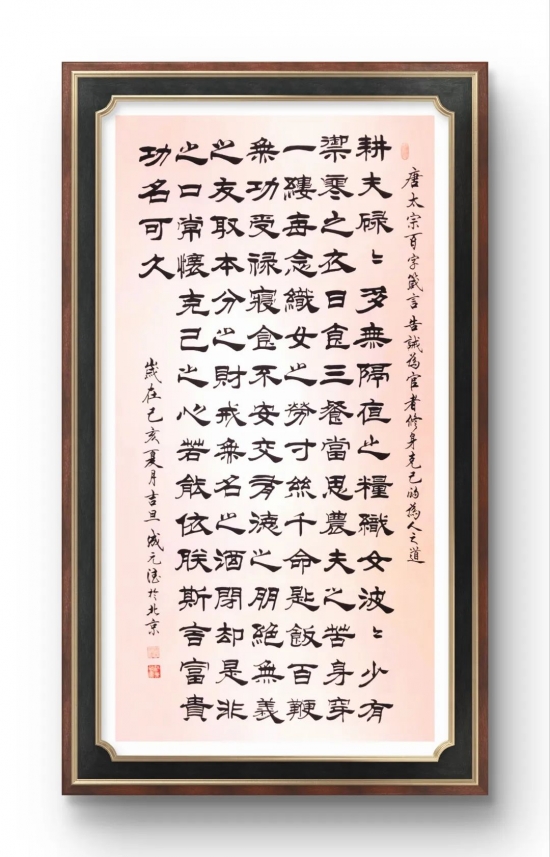 唐太宗百字箴言告誡為官者修身克己的為人之道
耕夫碌〻多無隔宿之糧織女波〻少有
禦寒之衣日食三餐當思農夫之苦身穿
一縷每念織女之勞寸絲千命匙飯百鞭
無功受祿寢食不安交有德之朋絕無義
之友取本分之財戒無名之酒閉却是非
之口常懷克己之心若能依朕斯言富貴
功名可久
歲在己亥夏月吉旦成元德於北京